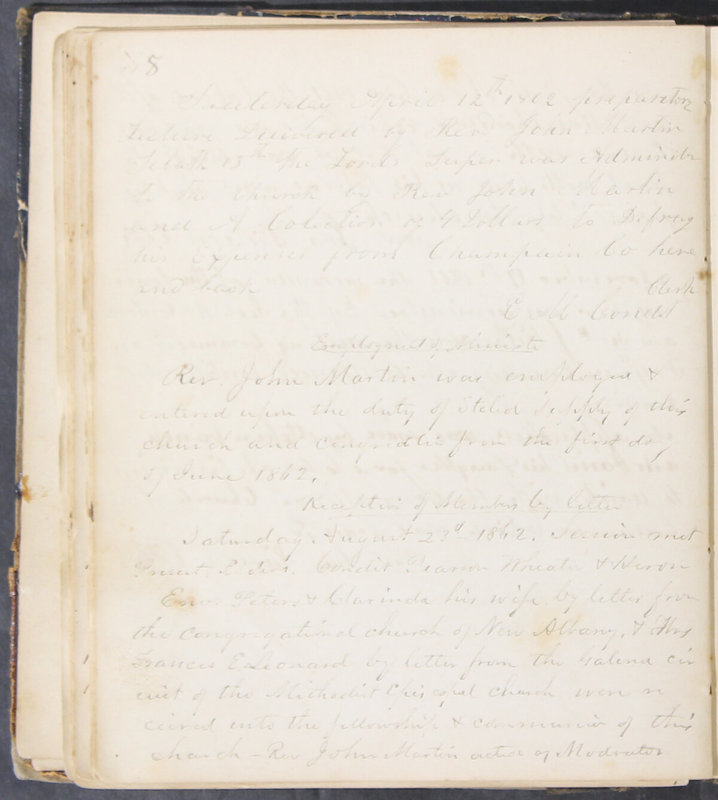 8
Saterday April 12th 1862 preparitory
Lecture Delivered by Rev John Martin
Sabath 13th the Lords Super was Administr
to the Church by Rev John Martin
and A Colection of 9 Dollars to Defray
his Expenses from Champain Co here
and back Clerk
E M Condit
Employment of Minister
Rev. John Martin was employed &
entered upon the duty of Stated Supply of this
church and congregatio from the first day
of June 1862.
Reception of Members by letter
Saturday August 23d 1862. Session met
Present Elders. Condit Pearson Wheater & Heron
Enos Peters & Clarinda his wife by letter from
the congregational church of New Albany, & Mrs
Frances E Leonard by letter from the Galena cir
cuit of the Methodist Episcopal church were re
ceived into the fellowship & communion of this
church - Rev John Martin acted as Modrator